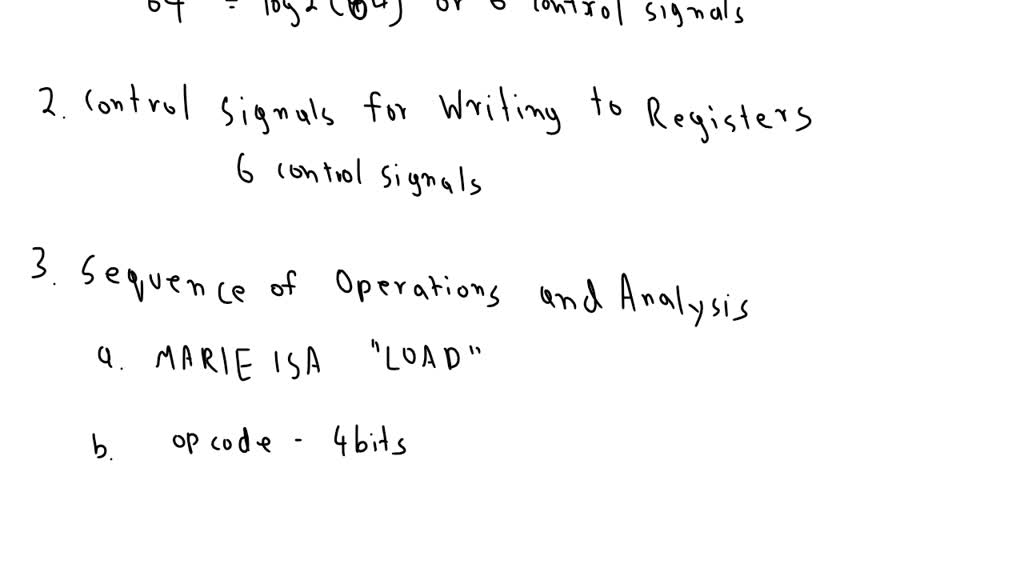 64 = log2(64) or 6 control signals
2. Control Signals for Writing to Registers
6 control signals
3. Sequence of Operations and Analysis
a. MARIE ISA "LOAD"
b. opcode - 4bits